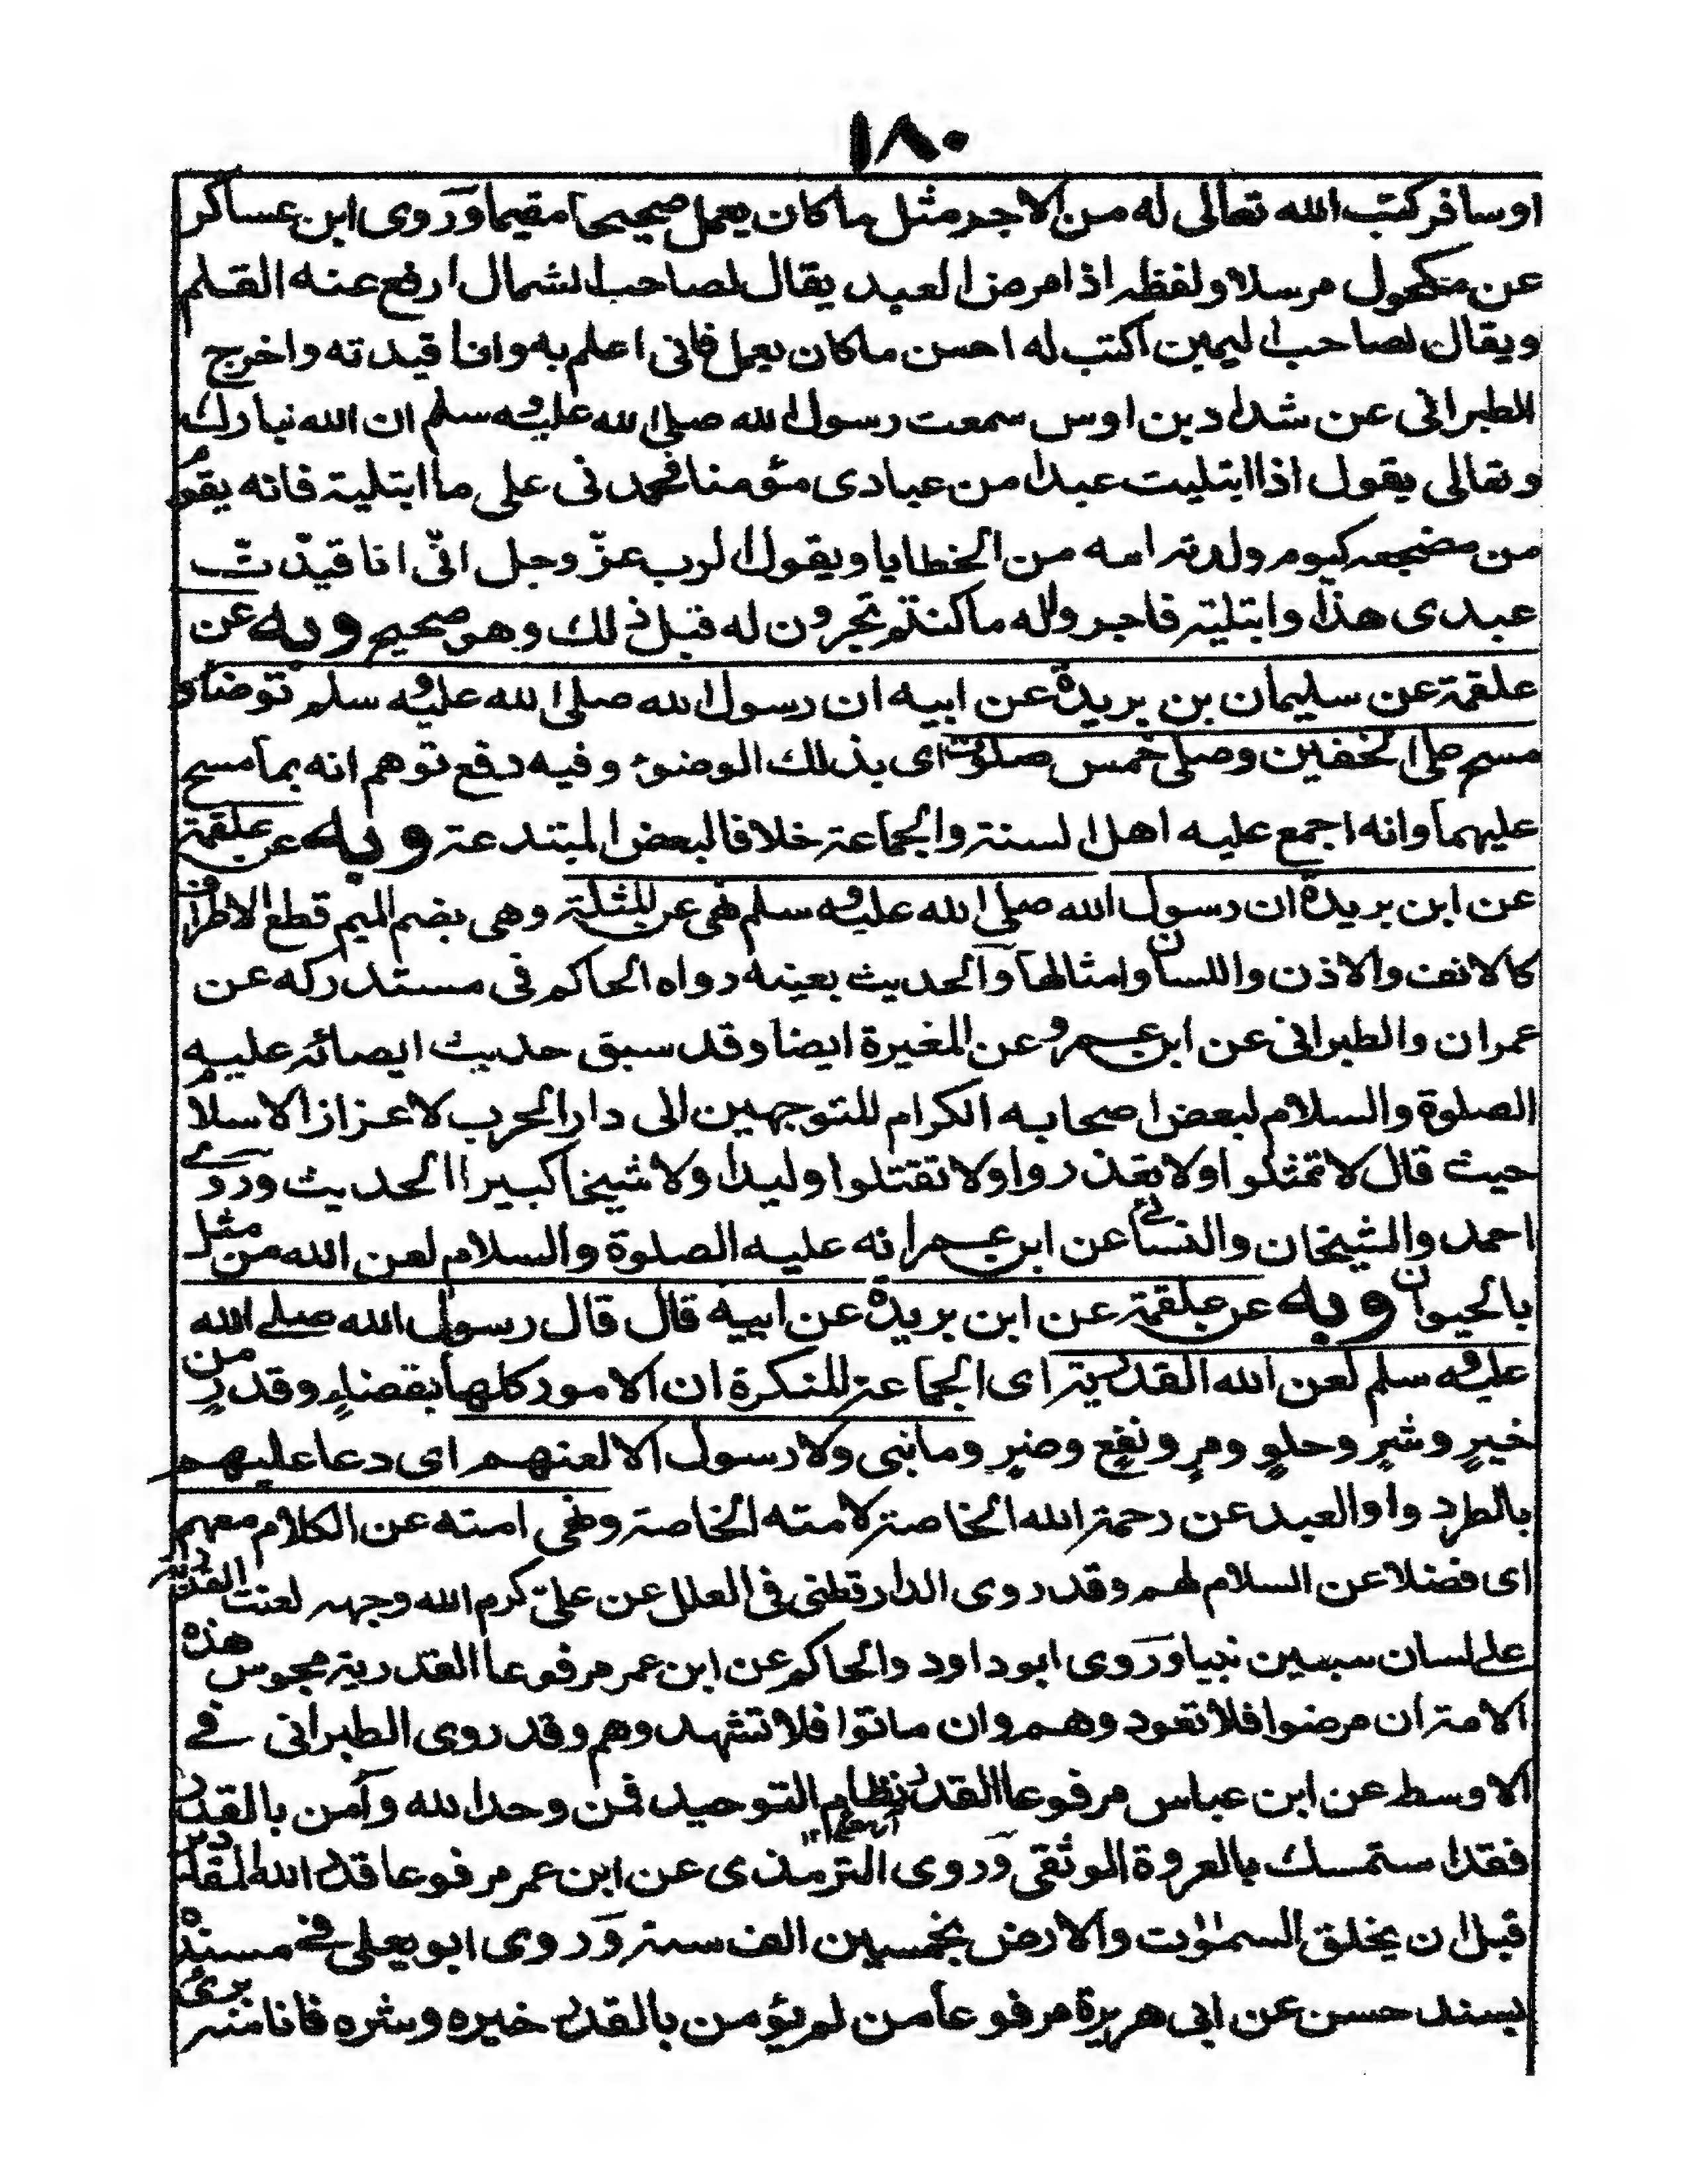 ١٨٠
او سافر كتب الله تعالى له من الاجر مثل ما كان يعمل صحيحا مقيما وروى ابن عساكر
عن مكحول مرسلا ولفظه اذا مرض العبد يقال لصاحب الشمال ارفع عنه القلم
ويقال لصاحب اليمين اكتب له احسن ما كان يعمل فانى اعلم به وانا قيدته واخرج
الطبرانى عن شداد بن اوس سمعت رسول الله صلى الله عليه وسلم ان الله تبارك
وتعالى يقول اذا ابتليت عبدا من عبادى مؤمنا فحمدنى على ما ابتليته فانه يقوم
من مضجعه كيوم ولدته امه من الخطايا ويقول الرب عزّ وجل انّى انا قيّدت
عبدى هذا وابتليته فاجروا له ما كنتم تجرون له قبل ذلك وهو صحيح وبه عن
علقمة عن سليمان بن بريدة عن ابيه ان رسول الله صلى الله عليه وسلم توضأ و
مسح على الخفين وصلى خمس صلوت اى بذلك الوضوء وفيه دفع توهم انه بما مسح
عليهما وانه اجمع عليه اهل السنة والجماعة خلافا لبعض المبتدعة وبه عن علقمة
عن ابن بريدة ان رسول الله صلى الله عليه وسلم نهى عن المثلة وهى بضم الميم قطع الاطراف
كالانف والاذن واللسان وامثالها والحديث بعينه رواه الحاكم فى مستدركه عن
عمران والطبرانى عن ابن عمر وعن المغيرة ايضا وقد سبق حديث ايصائه عليه
الصلوة والسلام لبعض اصحابه الكرام للتوجهين الى دار الحرب لاعزاز الاسلام
حيث قال لا تمثلوا ولا تغدروا ولا تقتلوا وليدا ولا شيخا كبيرا الحديث وروى
احمد والشيخان والنسائى عن ابن عمر انه عليه الصلوة والسلام لعن الله من مثل
بالحيوان وبه عن علقمة عن ابن بريدة عن ابيه قال قال رسول الله صلى الله
عليه وسلم لعن الله القدرية اى الجماعة المنكرة ان الامور كلها بقضاءٍ وقدرٍ من
خيرٍ وشرٍ وحلوٍ ومرٍ ونفعٍ وضرٍ وما نبى ولا رسول الا لعنهم اى دعا عليهم
بالطرد والعبد عن رحمة الله الخاصة لامته الخاصة ونهى امته عن الكلام معهم
اى فضلا عن السلام لهم وقد روى الدارقطنى فى العلل عن علىّ كرم الله وجهه لعنت القدرية
على لسان سبعين نبيا وروى ابو داود والحاكم عن ابن عمر مرفوعا القدرية مجوس هذه
الامة ان مرضوا فلا تعودوهم وان ماتوا فلا تشهدوهم وقد روى الطبرانى فى
الاوسط عن ابن عباس مرفوعا القدر نظام التوحيد فمن وحد الله وآمن بالقدر
فقد استمسك بالعروة الوثقى وروى الترمذى عن ابن عمر مرفوعا قدر الله المقادير
قبل ان يخلق السموٰت والارض بخمسين الف سنة وروى ابو يعلى فى مسنده
بسند حسن عن ابى هريرة مرفوعا من لم يؤمن بالقدر خيره وشره فانا منه برئ